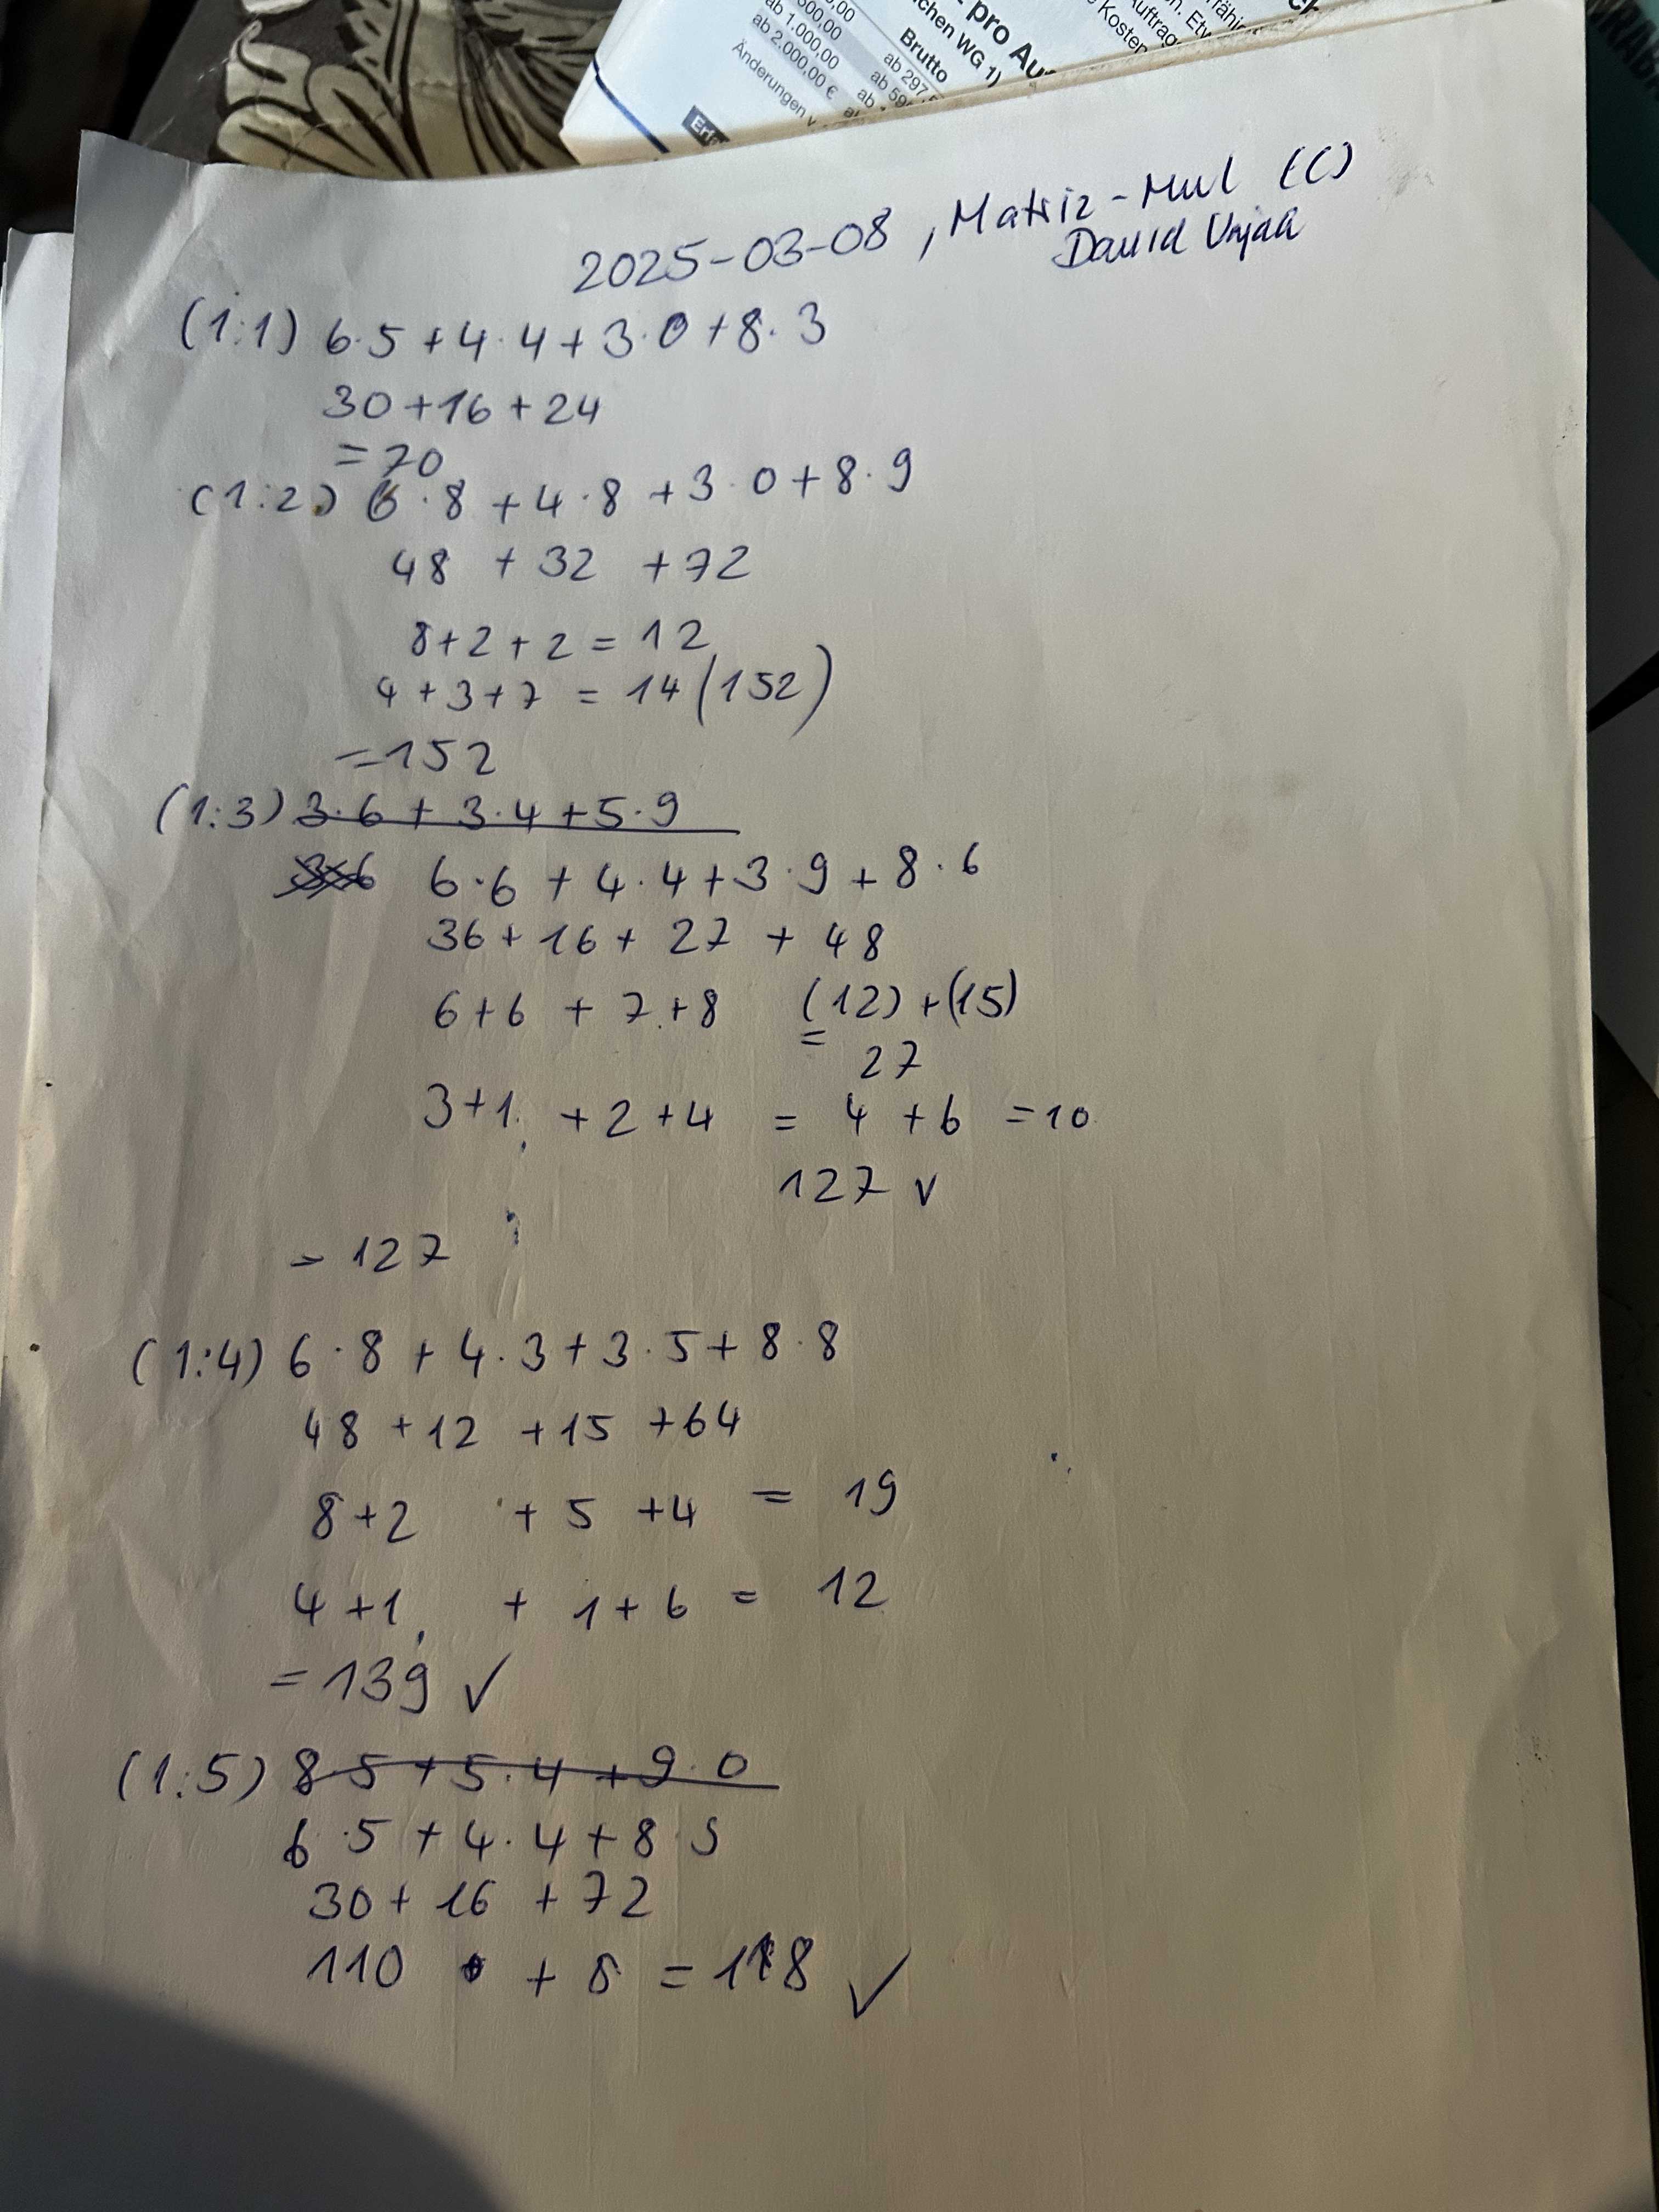 pro Au
chen WG 1)
Brutto
ab 297,
ab 59
ab
00,00
ab 1.000,00
ab 2.000,00 €
Änderungen v
Kosten
Auftrag
n. Etw
2025-03-08, Matrix-Mul (C)
David Vajda
(1:1) 6·5+4·4+3·0+8·3
30+16+24
=70
(1:2) 6·8+4·8+3·0+8·9
48+32+72
8+2+2=12
4+3+7=14(152)
=152
(1:3) 3·6+3·4+5·9
3·6 6·6+4·4+3·9+8·6
36+16+27+48
6+6+7+8 (12)+(15)
= 27
3+1+2+4=4+6=10
127 ✓
=127
(1:4) 6·8+4·3+3·5+8·8
48+12+15+64
8+2+5+4=19
4+1+1+6=12
=139 ✓
(1:5) 8·5+5·4+9·0
6·5+4·4+8·9
30+16+72
110+8=118 ✓